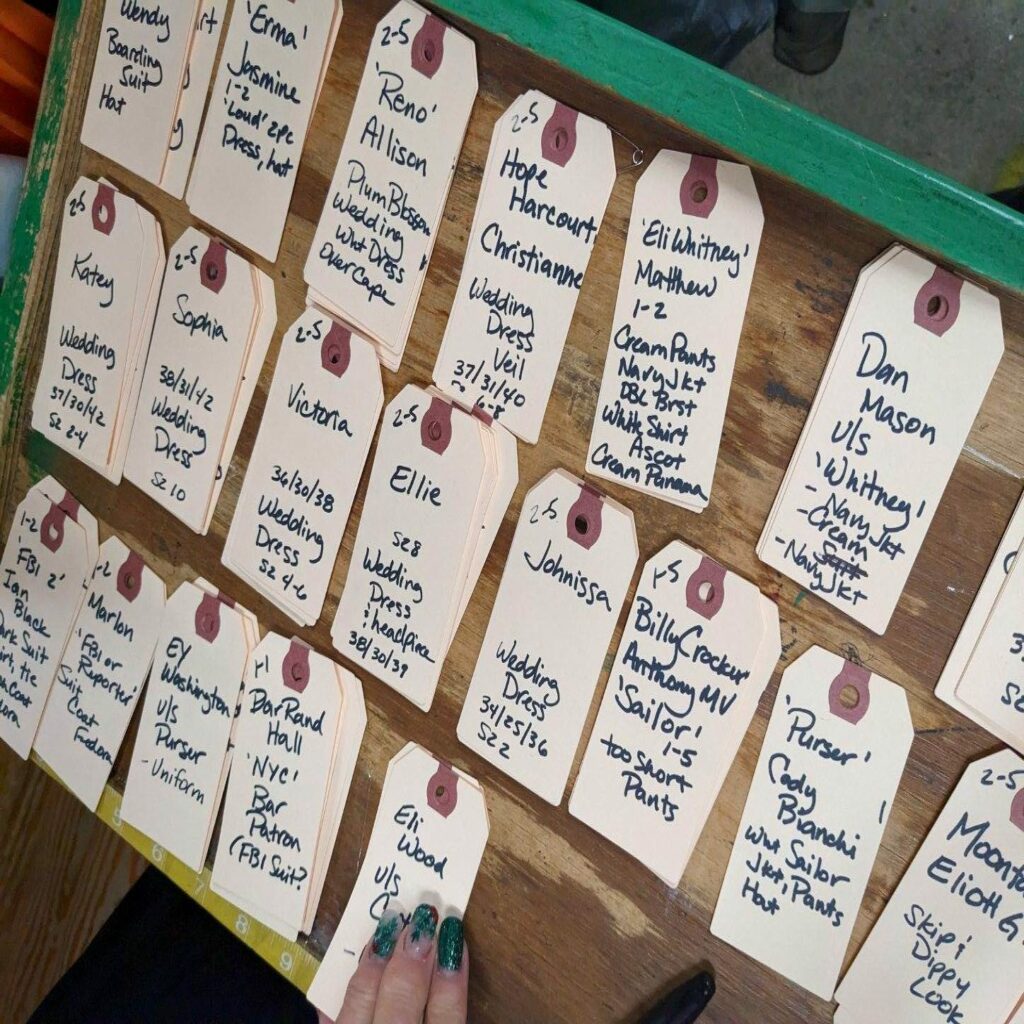 Wendy
Boarding
Suit
Hat
'Erma'
Jasmine
1-2
'Loud' 2pc
Dress, hat
2-5
'Reno'
Allison
Plum Blossom
Wedding
Wht Dress
Over Cape
2-5
Hope
Harcourt
Christianne
Wedding
Dress
Veil
37/31/40
'Eli Whitney'
Matthew
1-2
Cream Pants
Navy Jkt
DBL Brst
White Shirt
Ascot
Cream Panama
Dan
Mason
U/S
'Whitney'
- Navy Jkt
- Cream
- Navy Jkt
2-5
Katey
Wedding
Dress
37/30/42
SZ 2-4
2-5
Sophia
38/31/42
Wedding
Dress
SZ 10
2-5
Victoria
36/30/38
Wedding
Dress
SZ 4-6
2-5
Ellie
SZ 8
Wedding
Dress
i headpiece
38/30/39
2-5
Johnissa
Wedding
Dress
34/25/36
SZ 2
1-5
Billy Crocker
Anthony MV
'Sailor'
1-5
too short
Pants
'Purser'
Cody
Bianchi
Wht Sailor
Jkt, Pants
Hat
2-5
Elliott G
Skip i
Dippy
Look
1-2
'FBI 2'
Ian
Black
Suit
Marlon
'FBI or
Reporter'
Suit
Coat
Fedora
EY
Washington
U/S
Purser
- Uniform
BarRand
Hall
'NYC'
Bar
Patron
(FBI Suit?
Eli
Wood
U/S
5
6
7
8
9